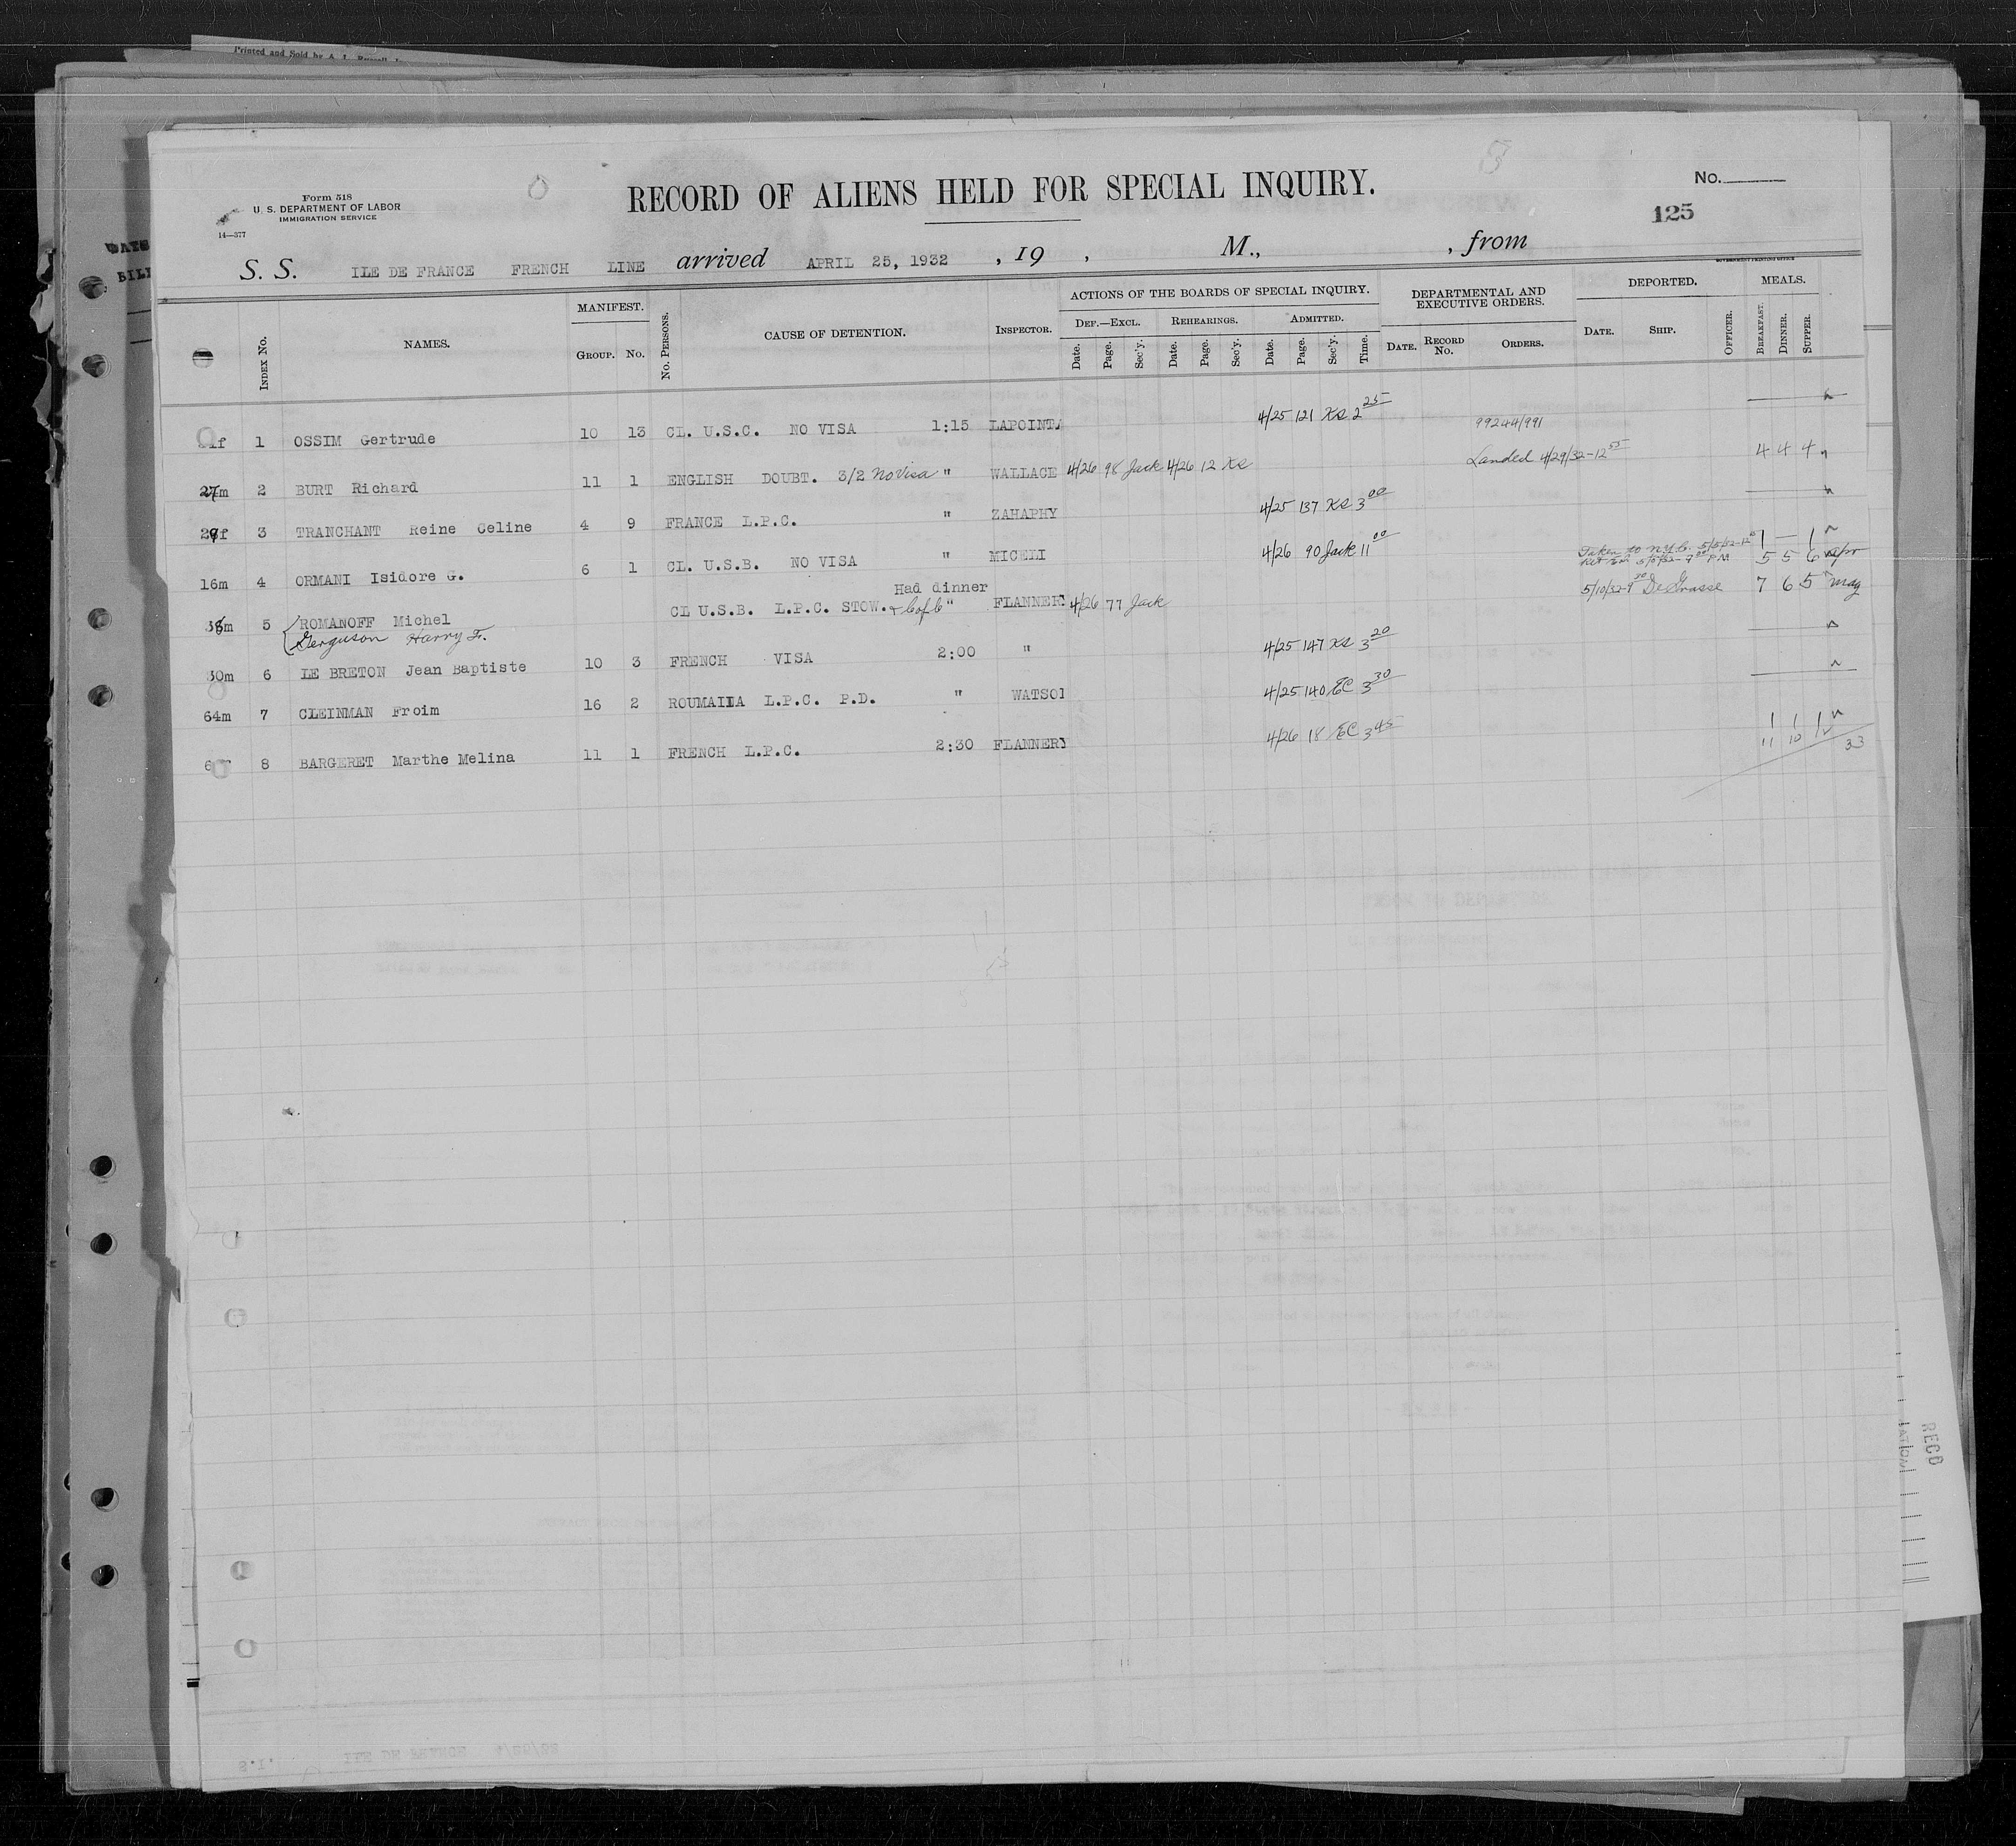 Printed and Sold by A. L.
Form 518
U. S. DEPARTMENT OF LABOR
IMMIGRATION SERVICE
14—377
RECORD OF ALIENS HELD FOR SPECIAL INQUIRY.
No.
125
S. S. ILE DE FRANCE FRENCH LINE arrived APRIL 25, 1932 , 19 , M., , from
GOVERNMENT PRINTING OFFICE
INDEX No. NAMES. MANIFEST. GROUP. No. No. PERSONS. CAUSE OF DETENTION. INSPECTOR.
ACTIONS OF THE BOARDS OF SPECIAL INQUIRY. DEF.—EXCL. Date. Page. Sec'y. REHEARINGS. Date. Page. Sec'y. ADMITTED. Date. Page. Sec'y. Time.
DEPARTMENTAL AND EXECUTIVE ORDERS. DATE. RECORD No. ORDERS.
DEPORTED. DATE. SHIP. OFFICER. MEALS. BREAKFAST. DINNER. SUPPER.
1 OSSIM Gertrude 10 13 CL. U.S.C. NO VISA 1:15 LAPOINT 4/25 121 KS 2 25
99244/991
27m 2 BURT Richard 11 1 ENGLISH DOUBT. 3/2 No Visa " WALLACE 4/26 98 Jack 4/26 12 KS Landed 4/29/32-12 55 4 4 4
3 TRANCHANT Reine Celine 4 9 FRANCE L.P.C. " ZAHAPHY 4/25 137 KS 3 00
16m 4 ORMANI Isidore G. 6 1 CL. U.S.B. NO VISA " MICELI 4/26 90 Jack 11 00 1 — 1
Taken to N.Y.C. 5/5/32-12
Ret 5/5/32-7 PM 5 5 6 Apr
Had dinner
5 ROMANOFF Michel CL U.S.B. L.P.C. STOW. & Cof b " FLANNERY 4/26 77 Jack 5/10/32-9 30 De Grasse 7 6 5 May
Gerguson Harry F.
30m 6 LE BRETON Jean Baptiste 10 3 FRENCH VISA 2:00 " 4/25 147 KS 3 20
64m 7 CLEINMAN Froim 16 2 ROUMAIIA L.P.C. P.D. " WATSO 4/25 140 EC 3 30
8 BARGERET Marthe Melina 11 1 FRENCH L.P.C. 2:30 FLANNERY 4/26 18 EC 3 45 1 1 1
11 10 33
RECO
S.I. ILE DE FRANCE 4/25/32